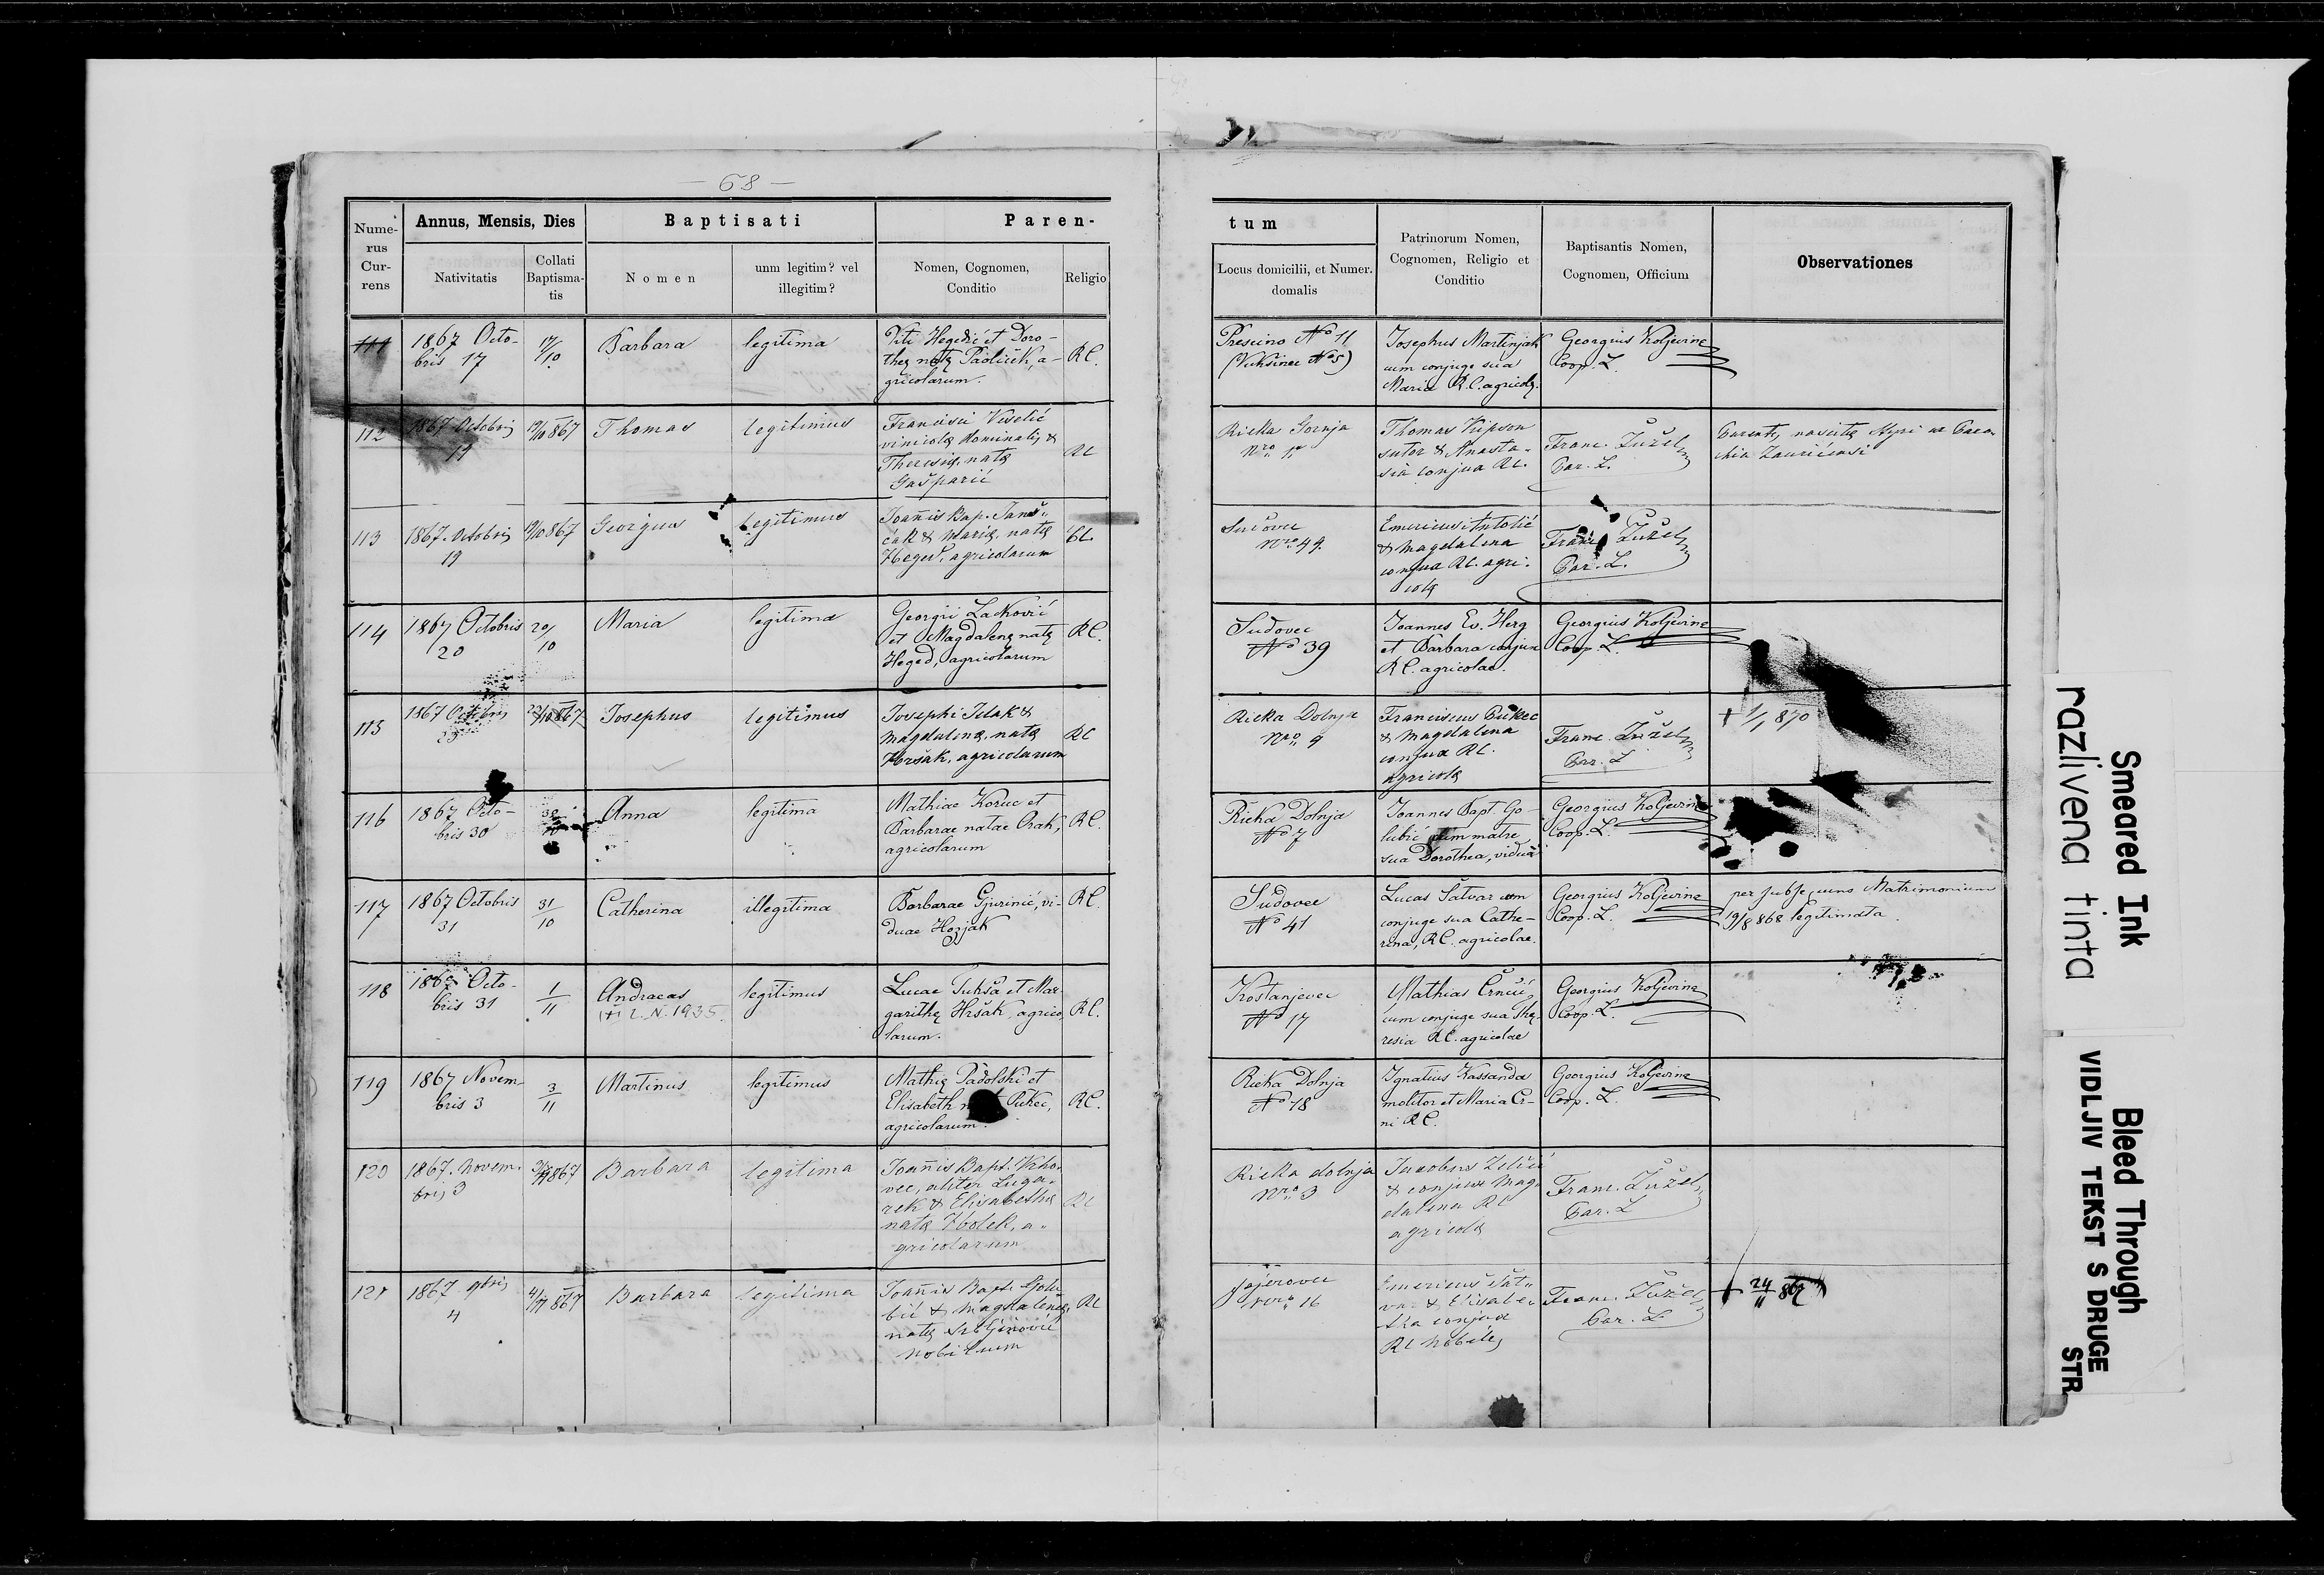 — 68 —
Annus, Mensis, Dies
Baptisati
Paren-
tum
Nume-
rus
Cur-
rens
Nativitatis
Collati
Baptisma-
tis
Nomen
unm legitim? vel
illegitim?
Nomen, Cognomen,
Conditio
Religio
Locus domicilii, et Numer.
domalis
Patrinorum Nomen,
Cognomen, Religio et
Conditio
Baptisantis Nomen,
Cognomen, Officium
Observationes
111
1867 Octo-
bris 17
17/10
Barbara
legitima
Viti Hegedić et Doro-
theę natę a-
gricolarum.
RC.
Prescino No 11
(Vuksinec No 5)
Josephus Martinjak
cum conjuge sua
Maria R.C. agricolę.
Georgius Koljevine
Coop. L.
112
1867 Octobris
19
19/10 867
Thomas
legitimus
Francisci Veselić
vinicolę Dominalis &
Theresię, natę
Gašparić
RC
Rieka Gornja
Nro 1
Thomas Kipson
sutor & Anasta-
sia conjux RC.
Franc. Žužel
Par. L.
113
1867. Octobris
19
19/10 867
Georgius
legitimus
Joañis Bap. Janš-
čak & Marię, natę
Heged, agricolarum
RC
Sudovec
Nro 49.
Emericus Antolić
& Magdalena
conjux RC. agri-
colę
Franc. Žužel
Par. L.
114
1867 Octobris
20
20/10
Maria
legitima
Georgii Lacković
et Magdalenę natę
Heged, agricolarum
RC.
Sudovec
No 39
Joannes Ev. Herg
et Barbara conjux
RC. agricolae.
Georgius Koljevine
Coop. L.
113
1867 Octobris
23
23/10 867
Josephus
legitimus
Josephi Jelak &
Magdalenę, natę
Hršak, agricolarum
RC
Rieka Dolnja
Nro 9
Franciscus Pukec
& Magdalena
conjux RC.
agricolę
Franc. Žužel
Par. L
† 1/1 870
116
1867 Octo-
bris 30
30/10
Anna
legitima
Mathiae Koruc et
Barbarae natae Orak,
agricolarum
RC.
Rieka Dolnja
No 7
Joannes Bapt. Go-
lubić cum matre
sua Dorothea, vidua
Georgius Koljevine
Coop. L.
117
1867 Octobris
31
31/10
Catherina
illegitima
Barbarae Gjurinić, vi-
duae Horjak
RC.
Sudovec
No 41
Lucas Šatvar cum
conjuge sua Cathe-
rina, RC. agricolae.
Georgius Koljevine
Coop. L.
per subsequens Matrimonium
19/8 868 legitimata.
118
1867 Octo-
bris 31
1/11
Andraeas
(†) Z. N. 1935.
legitimus
Lucae Tukša et Mar-
garithę Hršak, agrico-
larum.
RC.
Kostanjevec
No 17
Mathias Črnčić
cum conjuge sua The-
resia RC. agricolae
Georgius Koljevine
Coop. L.
119
1867 Novem-
bris 3
3/11
Martinus
legitimus
Mathię Padolski et
Elisabeth Pukec,
agricolarum.
RC.
Rieka Dolnja
No 18
Ignatius Kassanda
molitor et Maria Cr-
ni RC.
Georgius Koljevine
Coop. L.
120
1867. Novem-
bris 3
3/11 867
Barbara
legitima
Joañis Bapt. Vrho-
vec, aliter Luga-
rek & Elisabethę
natę Hbolek, a-
gricolarum
RC
Rieka dolnja
Nro 3
Jacobus Zelić
& conjux Mag-
dalena RC
agricolę
Franc. Žužel
Par. L
121
1867. 9bris
4
4/11 867
Barbara
legitima
Joañis Bapt. Golu-
bić & Magdalenę,
natę
nobilium
RC
Jajerovec
Nro 16
Emericus Šat-
var & Elisabe-
tha conjux
RC nobiles
Franc. Žužel
Par. L
† 24/11 867
Smeared Ink
razlivena tinta
Bleed Through
VIDLJIV TEKST S DRUGE
STR